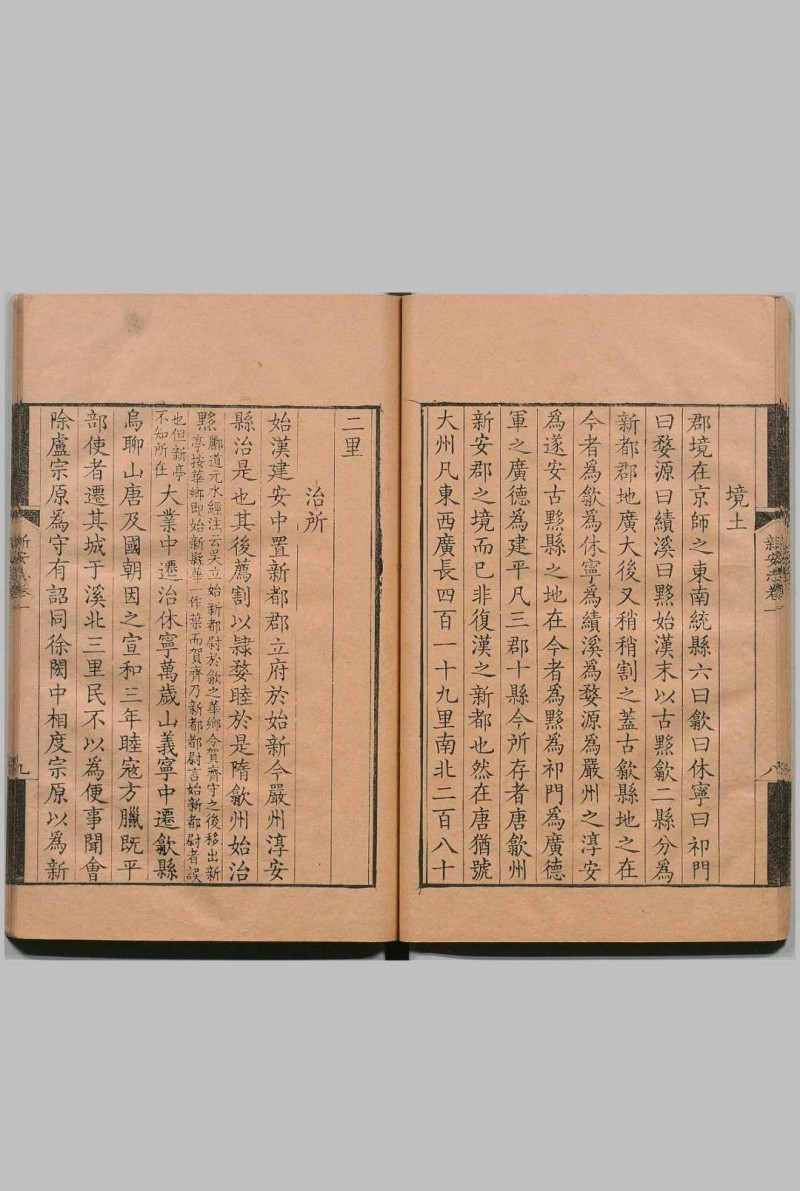 境土
郡境在京師之東南統縣六曰歙曰休寧曰祁門
曰婺源曰績溪曰黟始漢末以古黟歙二縣分為
新都郡地廣大後又稍稍割之蓋古歙縣地之在
今者為歙為休寧為績溪為婺源為嚴州之淳安
為遂安古黟縣之地在今者為黟為祁門為廣德
軍之廣德為建平凡三郡十縣今所存者唐歙州
新安郡之境而已非復漢之新都也然在唐猶號
大州凡東西廣長四百一十九里南北二百八十
新安志卷一
八
二里
治所
始漢建安中置新都郡立府於始新今嚴州淳安
縣治是也其後薦割以隸婺睦於是隋歙州始治
黟
酈道元水經注云吳立始新都尉於歙之華鄉令賀齊守之後移出新
亭按華鄉即始新縣華一作葉而賀齊乃新都都尉言始新都尉者誤
也但新亭
不知所在
大業中遷治休寧萬歲山義寧中遷歙縣
烏聊山唐及國朝因之宣和三年睦寇方臘既平
部使者遷其城于溪北三里民不以為便事聞會
除盧宗原為守有詔同徐閎中相度宗原以為新
新安志卷一
九